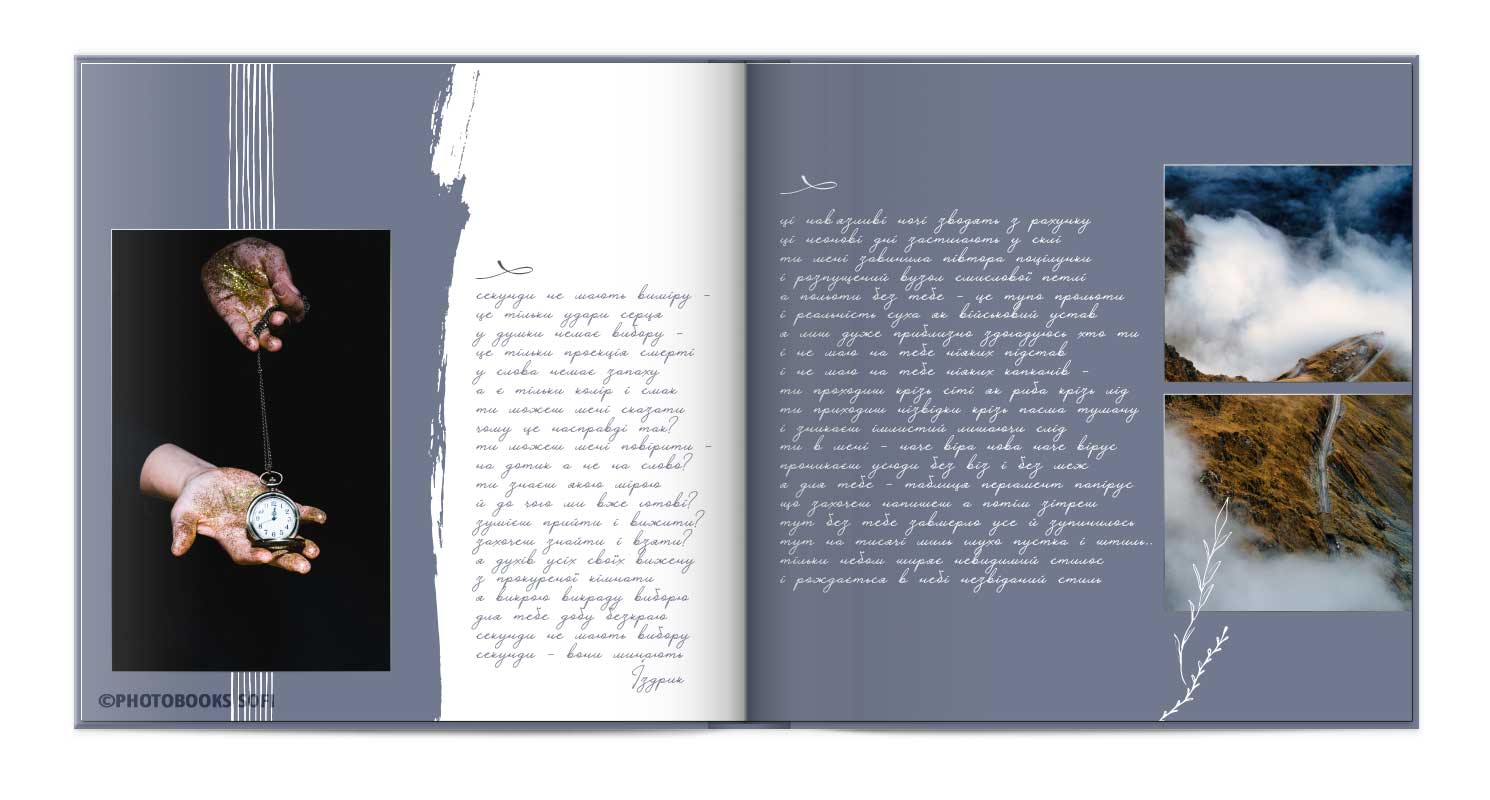 секунди не мають виміру -
це тільки удари серця
у думки немає вибору -
це тільки проекція смерті
у слова немає запаху
а є тільки колір і смак
ти можеш мені сказати
чому це насправді так?
ти можеш мені повірити -
на дотик а не на слово?
ти знаєш якою мірою
й до чого ми вже готові?
зумієш прийти і вижити?
захочеш знайти і взяти?
я духів усіх своїх вижену
з прокуреної кімнати
я викрою викраду виборю
для тебе добу безкраю
секунди не мають вибору
секунди - вони минають
Іздрик
©PHOTOBOOKS SOFI
ці нав'язливі ночі зводять з рахунку
ці неонові дні застигають у склі
ти мені завинила півтора поцілунки
і розпущений вузол смислової петлі
а польоти без тебе - це тупо прольоти
і реальність суха як військовий устав
я лиш дуже приблизно здогадуюсь хто ти
і не маю на тебе ніяких підстав
і не маю на тебе ніяких капканів -
ти проходиш крізь сіті як риба крізь лід
ти приходиш нізвідки крізь пасма туману
і зникаєш імлистий лишаючи слід
ти в мені - наче віра нова наче вірус
проникаєш усюди без віз і без меж
я для тебе - таблиця пергамент папірус
що захочеш напишеш а потім зітреш
тут без тебе завмерло усе й зупинилось
тут на тисячі миль глухо пустка і штиль..
тільки небом ширяє невидимий стилос
і рождається в небі незвіданий стиль